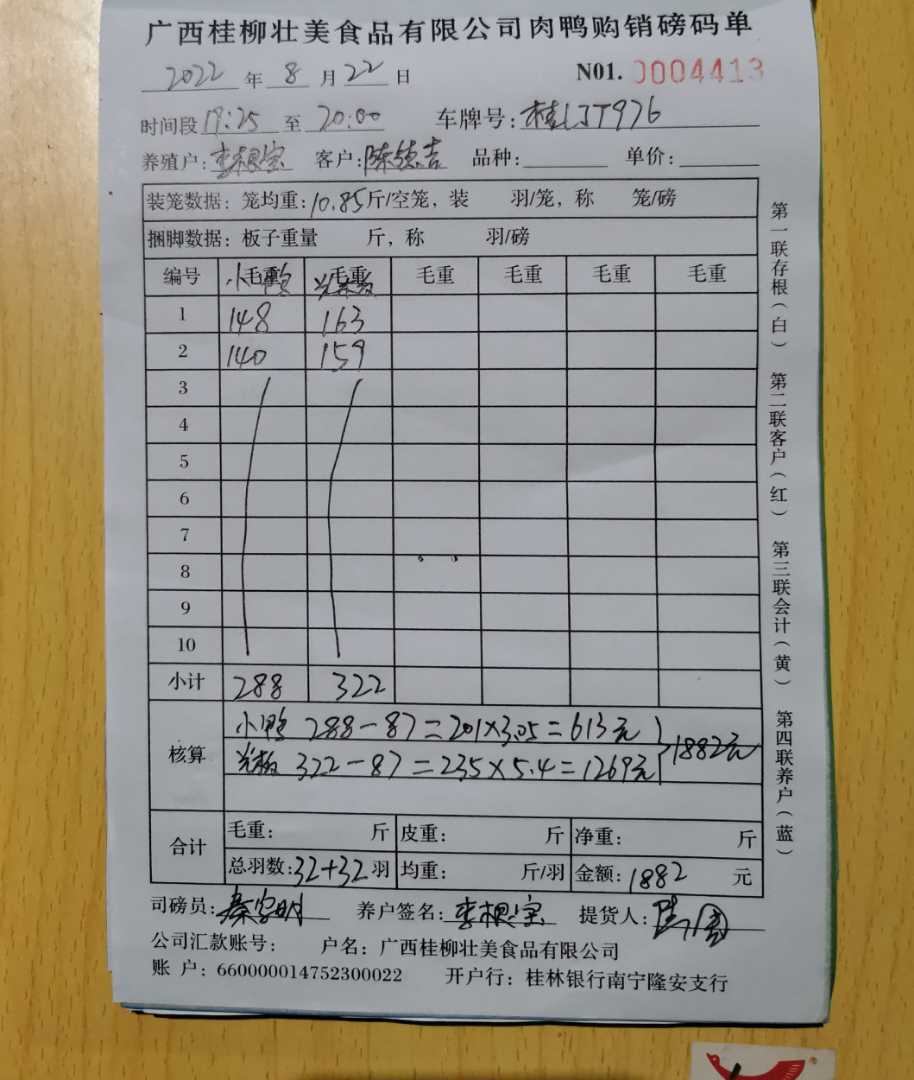 广西桂柳壮美食品有限公司肉鸭购销磅码单
2022 年 8 月 22 日 N01. 0004413
时间段 19:25 至 20:00 车牌号: 桂LJT976
养殖户: 李根宝 客户: 陈德吉 品种: 单价:
装笼数据: 笼均重: 10.85 斤/空笼, 装 羽/笼, 称 笼/磅
捆脚数据: 板子重量 斤, 称 羽/磅
编号 小鸭 光板 毛重 毛重 毛重 毛重
1 148 163
2 140 159
3
4
5
6
7
8
9
10
小计 288 322
核算
小鸭 288-87=201×3.05=613元
光板 322-87=235×5.4=1269元
1882元
合计
毛重: 斤 皮重: 斤 净重: 斤
总羽数: 32+32 羽 均重: 斤/羽 金额: 1882 元
司磅员: 养户签名: 李根宝 提货人:
公司汇款账号: 户名: 广西桂柳壮美食品有限公司
账 户: 660000014752300022 开户行: 桂林银行南宁隆安支行
第一联存根(白) 第二联客户(红) 第三联会计(黄) 第四联养户(蓝)